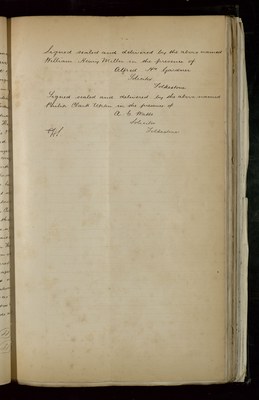 Signed sealed and delivered by the above named
William Henry Weller in the presence of
Alfred Wm
Solicitor
Folkestone
Signed sealed and delivered by the above named
Philip Clark in the presence of
A. G.
Solicitor
Folkestone